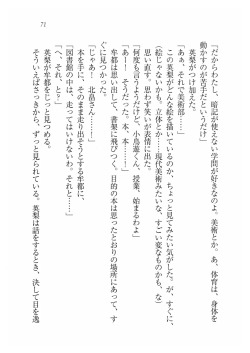 71
「だからわたし、暗記が使えない学問が好きなのよ。美術とか。あ、体育は、身体を
動かすのが苦手だというだけ」
英梨がつけ加えた。
「ああ、それで美術部……」
この英梨がどんな絵を描いているのか、ちょっと見てみたい気がした。が、すぐに、
（絵じゃないかも。立体とか……現代美術みたいな、すごい変なものかも、な）
思い直す。思わず笑いが表情に出た。
「何度も言うようだけど、小鳥遊くん、授業、始まるわよ」
「あ、そうだった。本、本……」
牟都は思い出して、書架に飛びつく。目的の本は思ったとおりの場所にあって、す
ぐに見つかった。
「じゃあ！　北畠さん………」
本を手に、そのまま走り出そうとする牟都に、
「図書館の中は、走ってはいけないわ。それと……」
「へ、それ、と？」
英梨が牟都をじっと見つめる。
そういえばさっきから、ずっと見られている。英梨は話をするとき、決して目を逸